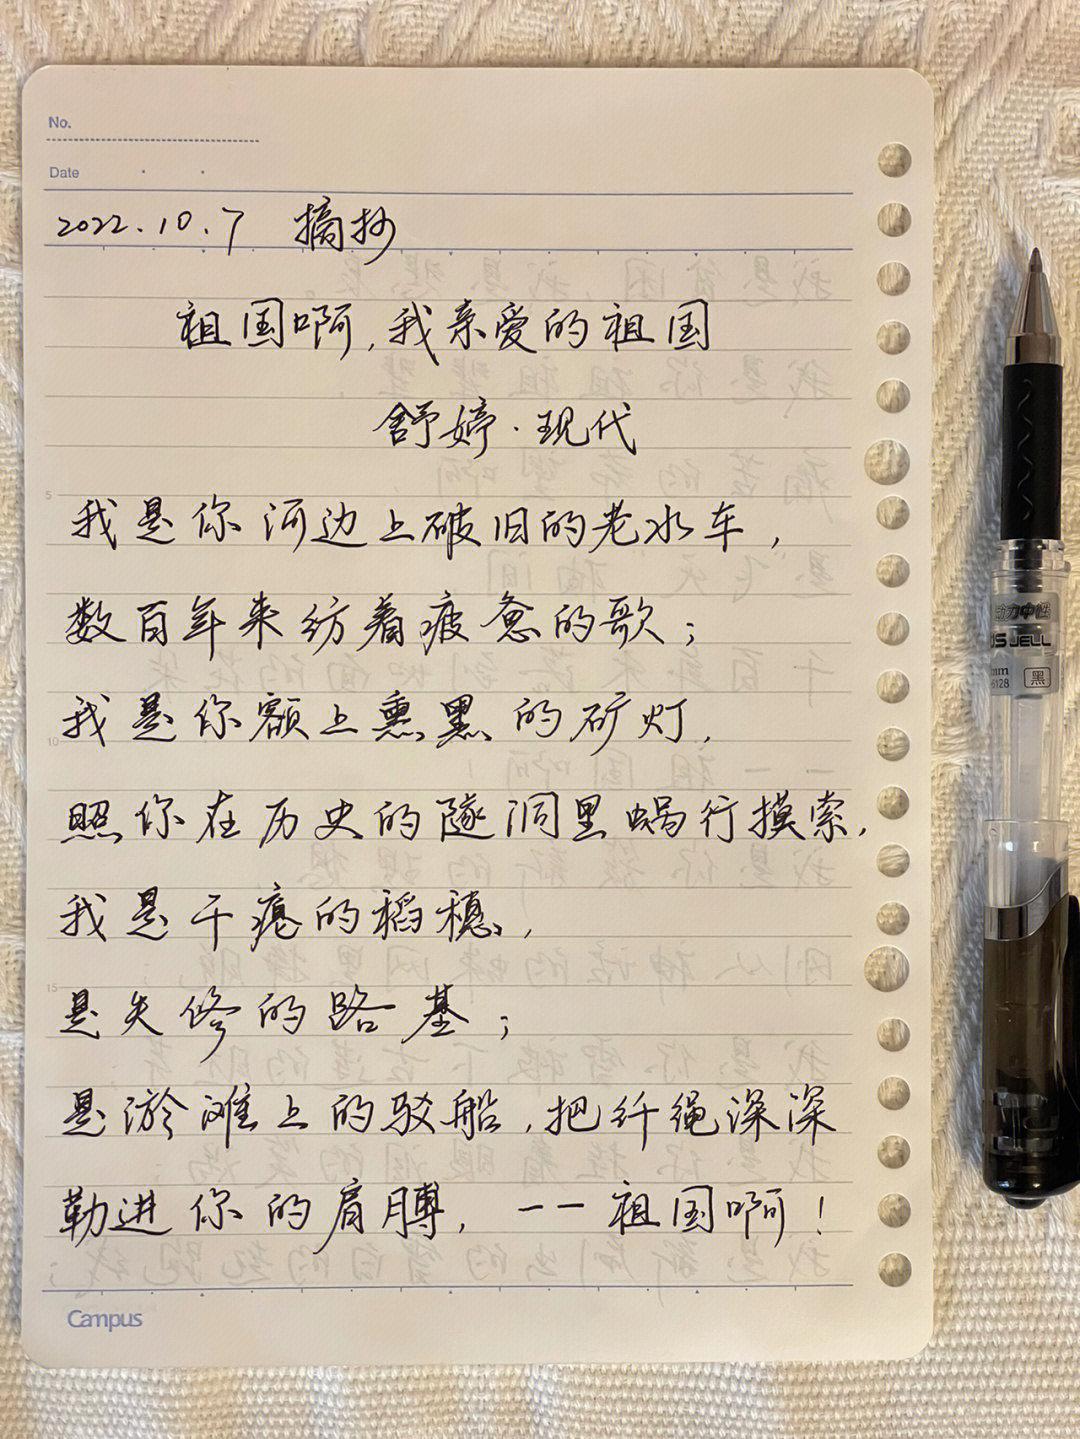 No.
Date
2022.10.7 摘抄
祖国啊,我亲爱的祖国
舒婷·现代
5
我是你河边上破旧的老水车,
数百年来纺着疲惫的歌;
我是你额上熏黑的矿灯,
10
照你在历史的隧洞里蜗行摸索,
我是干瘪的稻穗,
15
是失修的路基;
是淤滩上的驳船,把纤绳深深
勒进你的肩膊,——祖国啊!
Campus
动力中性
JELL
mm
6128
黑